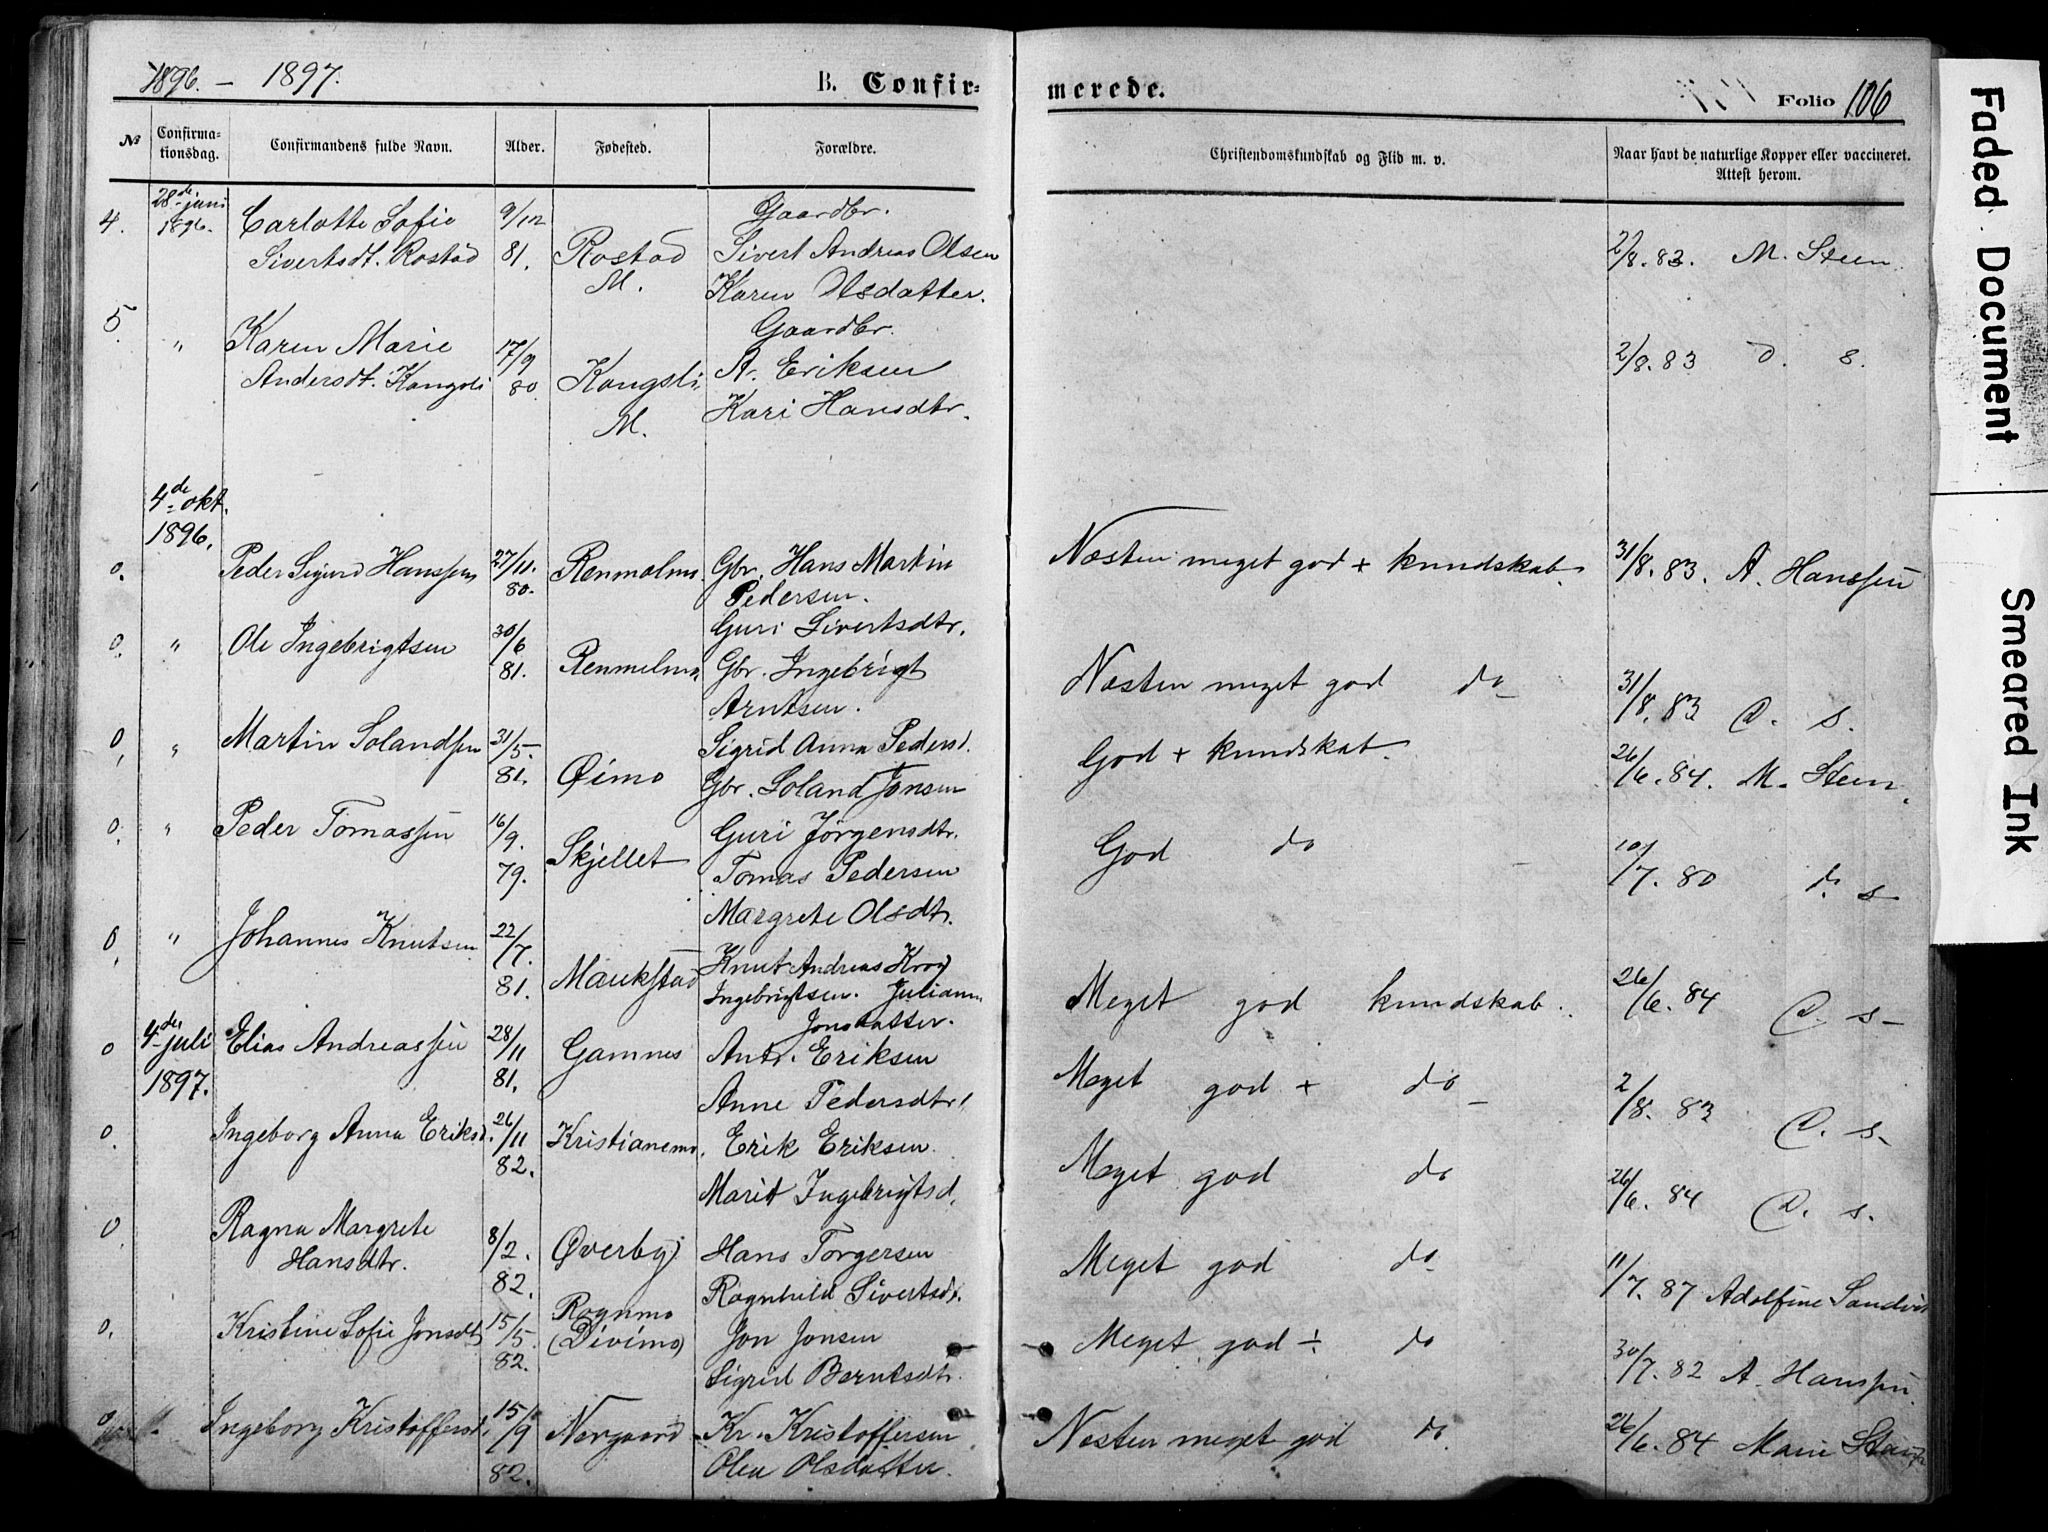 1896. – 1897.
B. Confir-
merede.
Folio 106
№
Confirma-
tionsdag.
Confirmandens fulde Navn.
Alder.
Fødested.
Forældre.
Christendomskundskab og Flid m. v.
Naar havt de naturlige Kopper eller vaccineret.
Attest herom.
4. 28de juni 1896. Carlotte Sofie 9/12 Gaardbr.
Sivertsdt. Rostad 81. Rostad Sivert Andreas Olsen 2/8. 83. M. Steen.
M. Karen Olsdatter.
5. " Karen Marie 17/9 Gaardbr.
Andersdt. Kongsli 80. Kongsli A. Eriksen 2/8. 83 d. s.
M. Kari Hansdtr.
4de okt.
1896.
0. Peder Sigurd Hanssen 27/11. Renmolmo. Gbr. Hans Martin Næsten meget god + kundskab. 31/8. 83. A. Hanssen
80. Pedersen.
Guri Sivertsdtr.
0. " Ole Ingebrigtsen 30/6 Renmelmo Gbr. Ingebrigt Næsten meget god do 31/8. 83 d. s.
81. Arntsen.
Sigrid Anna Pedersd.
0, " Martin Solandsen 31/5. Øimo Gbr. Soland Jonsen God + kundskab. 26/6. 84. M. Steen.
81.
0. " Peder Tomassen 16/9. Skjellet Guri Jörgensdtr. God do 10/7. 80 do s
79. Tomas Pedersen
Margrete Olsdtr.
0, " Johannes Knutsen 22/7. Maukstad Knut Andreas Kroj Meget god kundskab. 26/6. 84 d. s
81. Ingebrigtsen. Juliann
Jonsdatter.
0 4de juli Elias Andreassen 28/11 Gamnes Andr. Eriksen Meget god + do 2/8. 83 d. s.
1897. 81. Anne Pedersdtr.
0. Ingeborg Anna Eriksd. 26/11 Kristianemo. Erik Eriksen Meget god do 26/6. 84 d. s.
82. Marit Ingebrigtsd.
0, Ragna Margrete 8/2. Øverby Hans Torgersen Meget god do 11/7. 87 Adolfine Sandvi
Hansdtr. 82. Ragnhild Sivertsdt.
0. Kristine Sofie Jonsdt 15/5. Rognmo Jon Jonsen Meget god ÷ do 30/7. 82 A. Hanssen.
82. (Divimo) Sigrid Berntsdt.
0, Ingeborg Kristoffersd. 15/9 Norgaard Kr. Kristoffersen Næsten meget god do 26/6. 84 Marie
82. Olea Olsdatter.
Faded Document
Smeared Ink